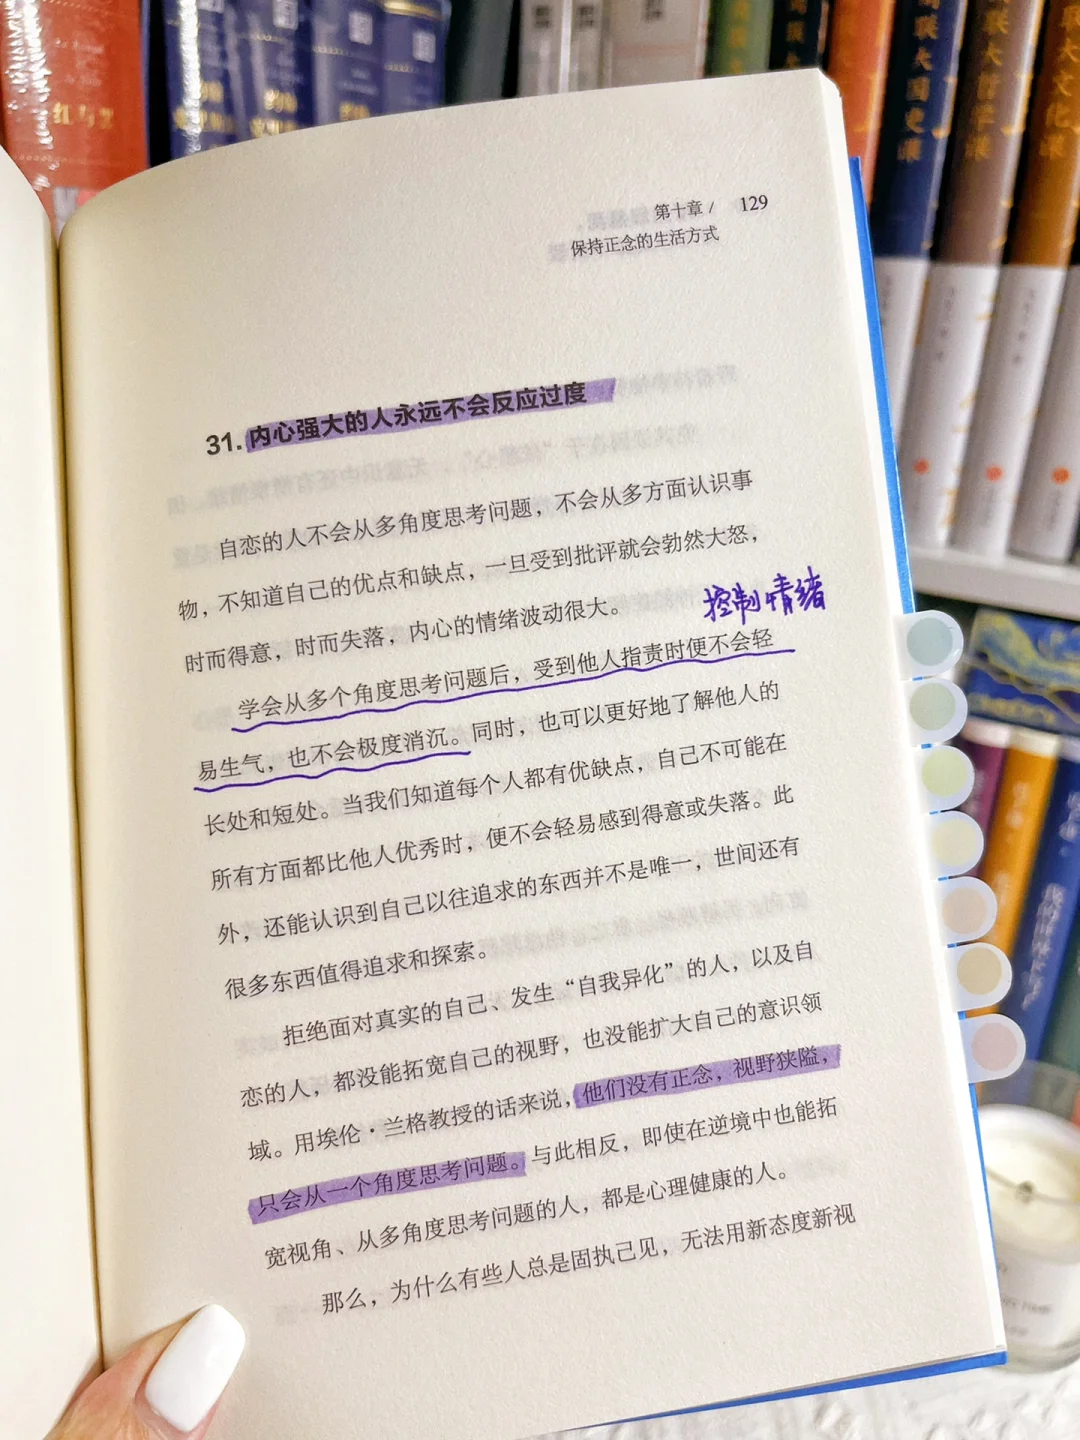 红与黑
第十章 / 129
保持正念的生活方式
31. 内心强大的人永远不会反应过度
自恋的人不会从多角度思考问题，不会从多方面认识事
物，不知道自己的优点和缺点，一旦受到批评就会勃然大怒，
时而得意，时而失落，内心的情绪波动很大。
控制情绪
学会从多个角度思考问题后，受到他人指责时便不会轻
易生气，也不会极度消沉。同时，也可以更好地了解他人的
长处和短处。当我们知道每个人都有优缺点，自己不可能在
所有方面都比他人优秀时，便不会轻易感到得意或失落。此
外，还能认识到自己以往追求的东西并不是唯一，世间还有
很多东西值得追求和探索。
拒绝面对真实的自己、发生“自我异化”的人，以及自
恋的人，都没能拓宽自己的视野，也没能扩大自己的意识领
域。用埃伦·兰格教授的话来说，他们没有正念，视野狭隘，
只会从一个角度思考问题。与此相反，即使在逆境中也能拓
宽视角、从多角度思考问题的人，都是心理健康的人。
那么，为什么有些人总是固执己见，无法用新态度新视
联大国史课
联大哲学课
联大文化课